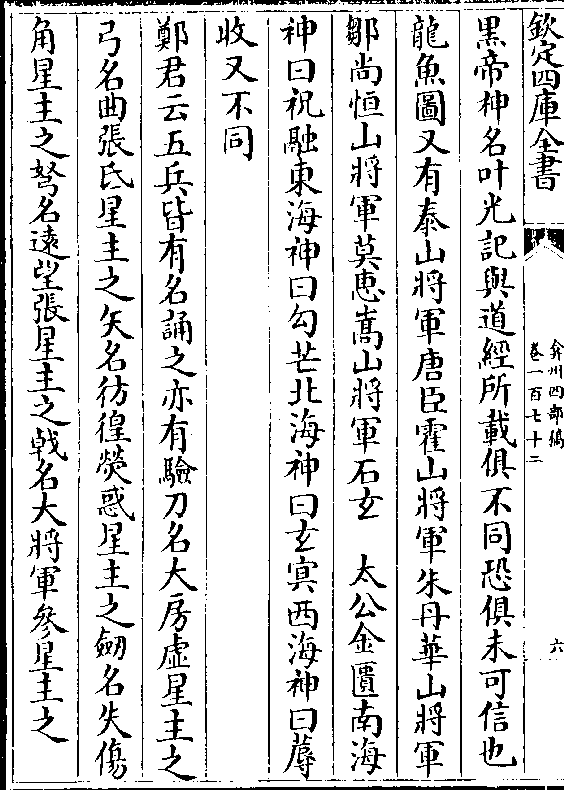 欽定四庫全書
弇州四部稿
卷一百七十二
六
黒帝神名叶光記與道經所載俱不同恐俱未可信也
龍魚圖又有泰山將軍唐臣霍山將軍朱丹華山將軍
鄒尚恒山將軍莫惠嵩山將軍石玄 太公金匱南海
神曰祝融東海神曰勾芒北海神曰玄㝠西海神曰蓐
收又不同
鄭君云五兵皆有名誦之亦有驗刀名大房虛星主之
弓名曲張氐星主之矢名彷徨熒惑星主之劒名失傷
角星主之弩名逺望張星主之㦸名大將軍參星主之